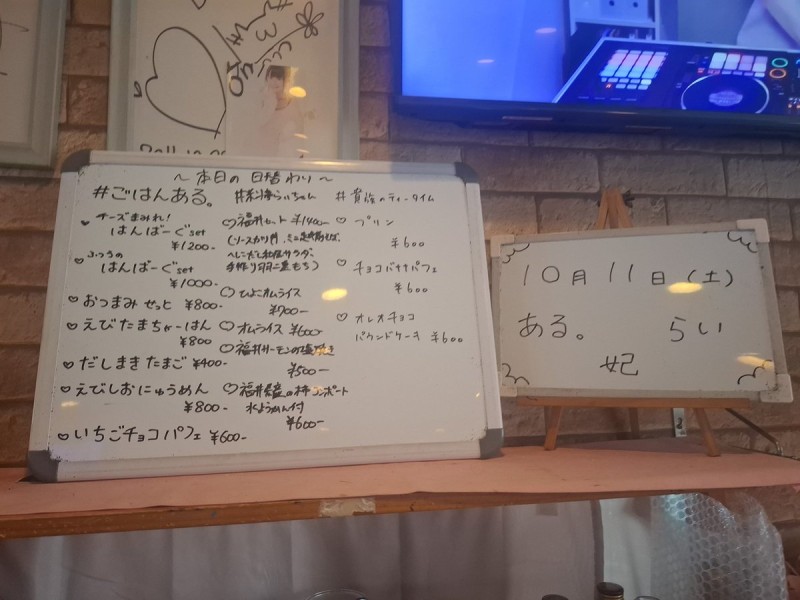 ～本日の日替わり～
#ごはんある。
チーズまみれ!
♡はんばーぐset
¥1200-
ふつうの
♡はんばーぐset
¥1000-
♡おつまみせっと ¥800-
♡えびたまちゃーはん
¥800
♡だしまきたまご ¥400-
♡えびしおにゅうめん
¥800-
♡いちごチョコパフェ ¥600-
らいちゃん
♡福井セット ¥1400-
(ソースカツ丼、ミニ越前そば、
サラダ、
手作り羽二重もち)
♡ひよこオムライス
¥700-
♡オムライス ¥600-
♡福井サーモンの塩焼き
¥500-
♡福井県産の柿コンポート
水ようかん付
¥600-
#貴族のティータイム
♡プリン
¥600
♡チョコバナナパフェ
¥600
♡オレオチョコ
パウンドケーキ ¥600
10月11日(土)
ある。 らい
妃